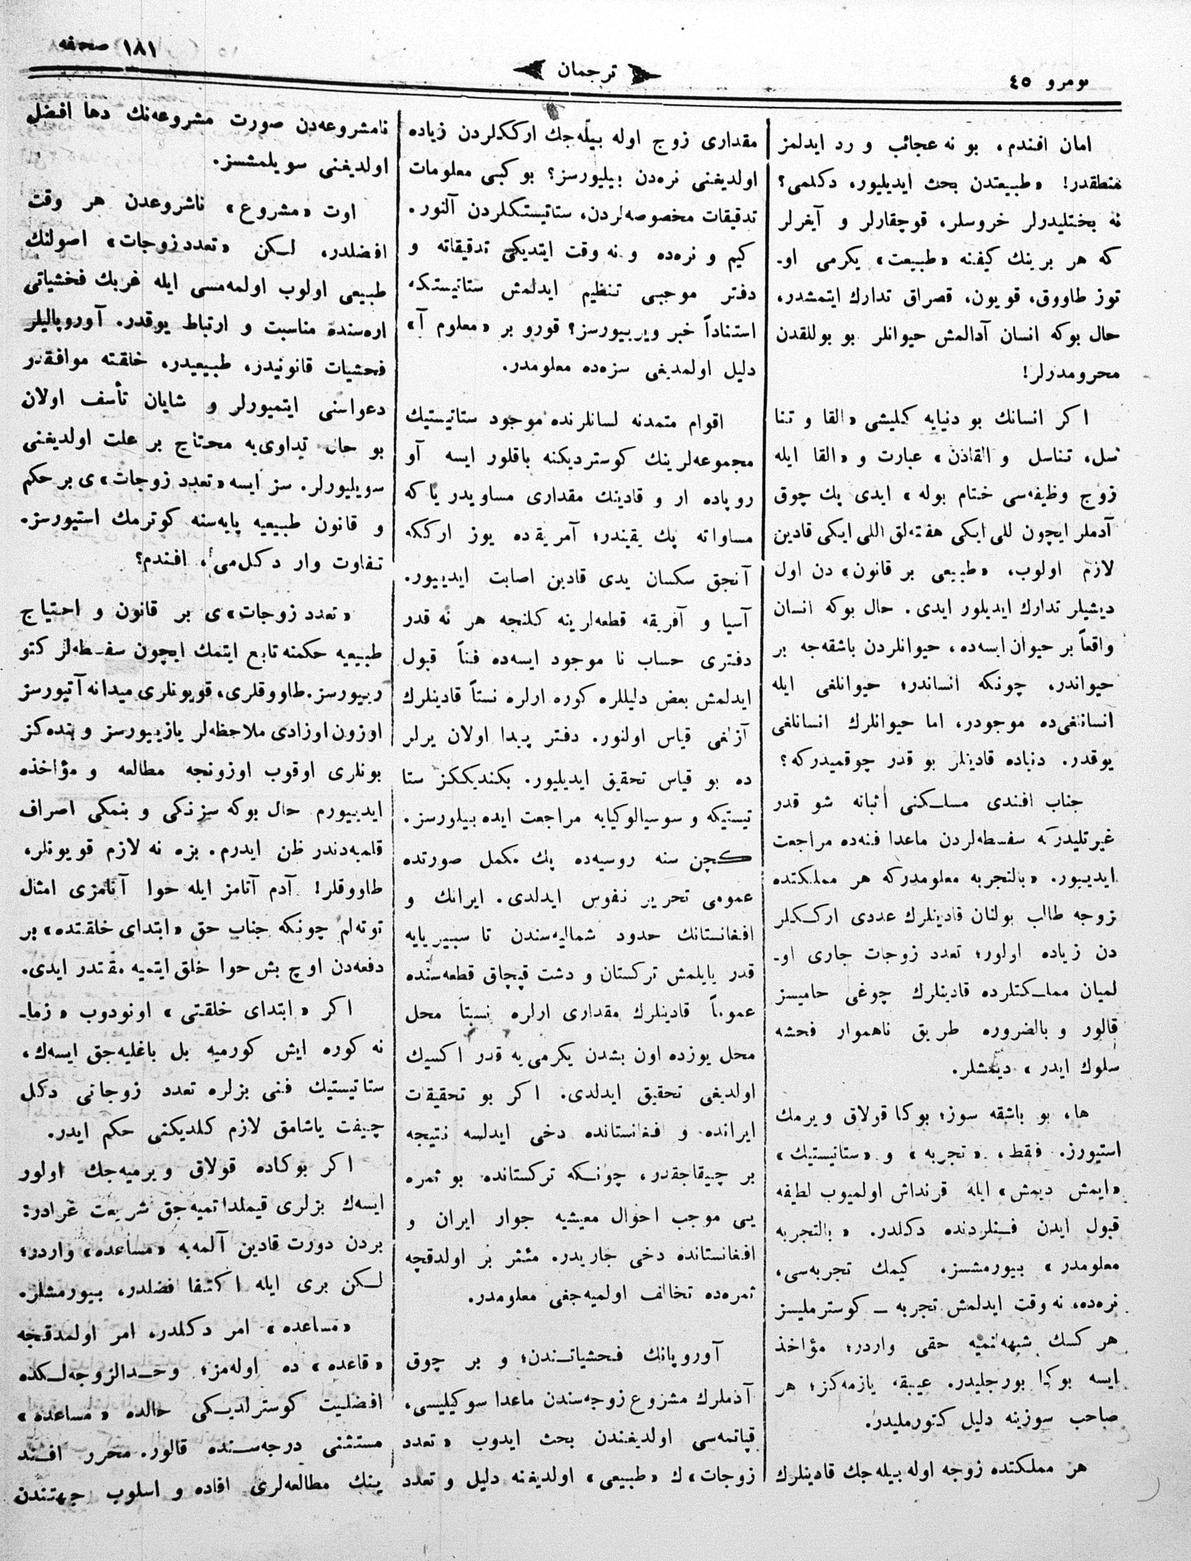 نومرو ٤٥
ترجمان
١٨١ صحفه
امان افندم، بو نه عجائب و رد ایدلمز
منطقدر! «طبیعتدن بحث ایدیلیور، دکلمی؟
نه بختلیدرلر خروسلر، قوچقارلر و آیغرلر
که هر برینك کیفنه «طبیعت» یکرمی او‌ـ
توز طاووق، قویون، قصراق تدارك ایتمشدر،
حال بوکه انسان آدالمش حیوانلر بو بوللقدن
محرومدرلر!
اکر انسانك بو دنیایه کلیشی «القا و تنا
سل، تناسل و القادن» عبارت و «القا ایله
زوج وظیفه‌سی ختام بوله» ایدی پك چوق
آدملر ایچون للی ایکی هفته‌لق اللی ایکی قادین
لازم اولوب، «طبیعی بر قانون» دن اول
دیشیلر تدارك ایدیلور ایدی. حال بوکه انسان
واقعاً بر حیوان ایسه‌ده، حیوانلردن باشقه‌جه بر
حیواندر، چونکه انساندر؛ حیوانلغی ایله
انسانلغی‌ده موجودر، اما حیوانلرك انسانلغی
یوقدر. دنیاده قادینلر بو قدر چوقمیدرکه؟
جناب افندی مسلـکنی اثباته شو قدر
غیرتلیدرکه سفسطه‌لردن ماعدا فنه‌ده مراجعت
ایدییور. «بالتجربه معلومدرکه هر مملکتده
زوجه طالب بولنان قادینلرك عددی ارکـکلر
دن زیاده اولور؛ تعدد زوجات جاری او‌ـ
لمیان مملـکتلرده قادینلرك چوغی حامیسز
قالور و بالضروره طریق ناهموار فحشه
سلوك ایدر» دیمشلر.
ها، بو باشقه سوز؛ بوکا قولاق ویرمك
استیورز. فقط، «تجربه» و «ستاتیستیك»
«ایمش دیمش» ایله قرنداش اولمیوب لطیفه
قبول ایدن فـنلردنده دکلدر. «بالتجربه
معلومدر» بیورمشسز، کیمك تجربه‌سی،
نره‌ده، نه وقت ایدلمش تجربه ـ کوسترملیسز
هر کسك شبهه‌نمیه حقی واردر؛ مؤاخذ
ایسه بوکا بورجلیدر. عیبقه یازمه‌کز؛ هر
صاحب سوزینه دلیل کتورملیدر.
هر مملکتده زوجه اوله بیله‌جك قادینلرك
مقداری زوج اوله بیله‌جك ارککلردن زیاده
اولدیغنی نره‌دن بیلیورسز؟ بو کبی معلومات
تدقیقات مخصوصه‌لردن، ستاتیستکلردن آلنور.
کیم و نره‌ده و نه وقت ایتدیکی تدقیقاته و
دفتر موجبی تنظیم ایدلمش ستاتیستکه
استناداً خبر ویرییورسز؟ قورو بر «معلوم آ»
دلیل اولمدیغی سزه‌ده معلومدر.
اقوام متمدنه لسانلرنده موجود ستاتیستیك
مجموعه‌لرینك کوستردیکنه باقلور ایسه آو
روپاده ار و قادینك مقداری مساویدر یا که
مساواته پك یقیندر؛ آمریقه‌ده یوز ارککه
آنجق سکسان یدی قادین اصابت ایدییور.
آسیا و آفریقه قطعه‌لرینه کلنجه هر نه قدر
دفتری حساب نا موجود ایسه‌ده فناً قبول
ایدلمش بعض دلیللره کوره ارلره نسبتاً قادینلرك
آزلغی قیاس اولنور. دفتر پیدا اولان یرلر
ده بو قیاس تحقیق ایدیلیور. بکندیککز ستا
تیستیکه و سوسیالوکیایه مراجعت ایده بیلورسز.
کچن سنه روسیه‌ده پك مکمل صورتده
عمومی تحریر نفوس ایدلدی. ایرانك و
افغانستانك حدود شمالیه‌سندن تا سیبیریایه
قدر یایلمش ترکستان و دشت قپچاق قطعه‌سنده
عموماً قادینلرك مقداری ارلره نسبتاً محل
محل یوزده اون بشدن یکرمی‌یه قدر اکسیك
اولدیغی تحقیق ایدلدی. اکر بو تحقیقات
ایرانده و فغانستانده دخی ایدلسه نتیجه
بر چیقاجقدر، چونـکه ترکستانده بو ثمره
یی موجب احوال معیشیه جوار ایران و
افغانستانده دخی جاریدر. مثثر بر اولدقچه
ثمره‌ده تخالف اولمیه‌جغی معلومدر.
آوروپانك فـحشیاتـندن؛ و بر چوق
آدملرك مشروع زوجه‌سندن ماعدا سوکیلیسی،
قپاتمه‌سی اولدیغندن بحث ایدوب «تعدد
زوجات» ك «طبیعی» اولدیغنه دلیل و تعدد
نامشروعه‌دن صورت مشروعه‌نك دها افضل
اولدیغنی سویلمشسز.
اوت «مشروع» ناشروعدن هر وقت
افضلدر، لـکن «تعدد زوجات» اصولنك
طبیعی اولوب اولمه‌مسی ایله غربك فحشیاتی
اره‌سنده مناسبت و ارتباط یوقدر. آوروپالیلر
فحشیات قانونیدر، طبیعیدر، خلقته موافقدر
دعواسنی ایتمیورلر و شایان تأسف اولان
بو حال تداوی‌یه محتاج بر علت اولدیغنی
سویلیورلر. سز ایسه «تعدد زوجات» ی بر حکم
و قانون طبیعیه پایه‌سنه کوترمك استیورسز.
تفاوت وار دکل‌می، افندم؟
«تعدد زوجات» ی بر قانون و احتیاج
طبیعیه حکمنه تابع ایتمك ایچون سفسطه‌لر کتو
رییورسز. طاووقلری، قویونلری میدانه آتیورسز
اوزون اوزادی ملاحظه‌لر یازییورسز و بنده‌کز
بونلری اوقوب اوزونجه مطالعه و مؤاخذه
ایدییورم حال بوکه سزنکی و بنمکی اصراف
قلمیه‌دندر ظن ایدرم. بزه نه لازم قویونلر،
طاووقلر! آدم آتامز ایله حوا آنامزی امثال
توته‌لم چونکه جناب حق «ابتدای خلقتده» بر
دفعه‌دن اوچ بش حوا خلق ایتمیه مقتدر ایدی.
اکر «ابتدای خلقتی» اونودوب «زما‌ـ
نه کوره ایش کورمیه بل باغلیه‌جق ایسه‌ك،
ستاتیستیك فنی بزلره تعدد زوجاتی دکل
چیفت یاشامق لازم کلدیکنی حکم ایدر.
اکر بوکاده قولاق ویرمیه‌جك اولور
ایسه‌ك بزلری قیملداتمیه‌جق شریعت غرادر:
بردن دورت قادین آلمه‌یه «مساعده» واردر؛
لـکن بری ایله اکتفا فضلدر، بیورمشلر.
«مساعده» امر دکلدر، امر اولمدقجه
«قاعده» ده اوله‌مز؛ وحـدالزوجه‌لـکده
افضلیت کوسترلدیـکی حالده «مساعده»
مستثنی درجه‌سـنده قالور. محرر افـند
ینك مطالعه‌لری افاده و اسلوب جهتندن